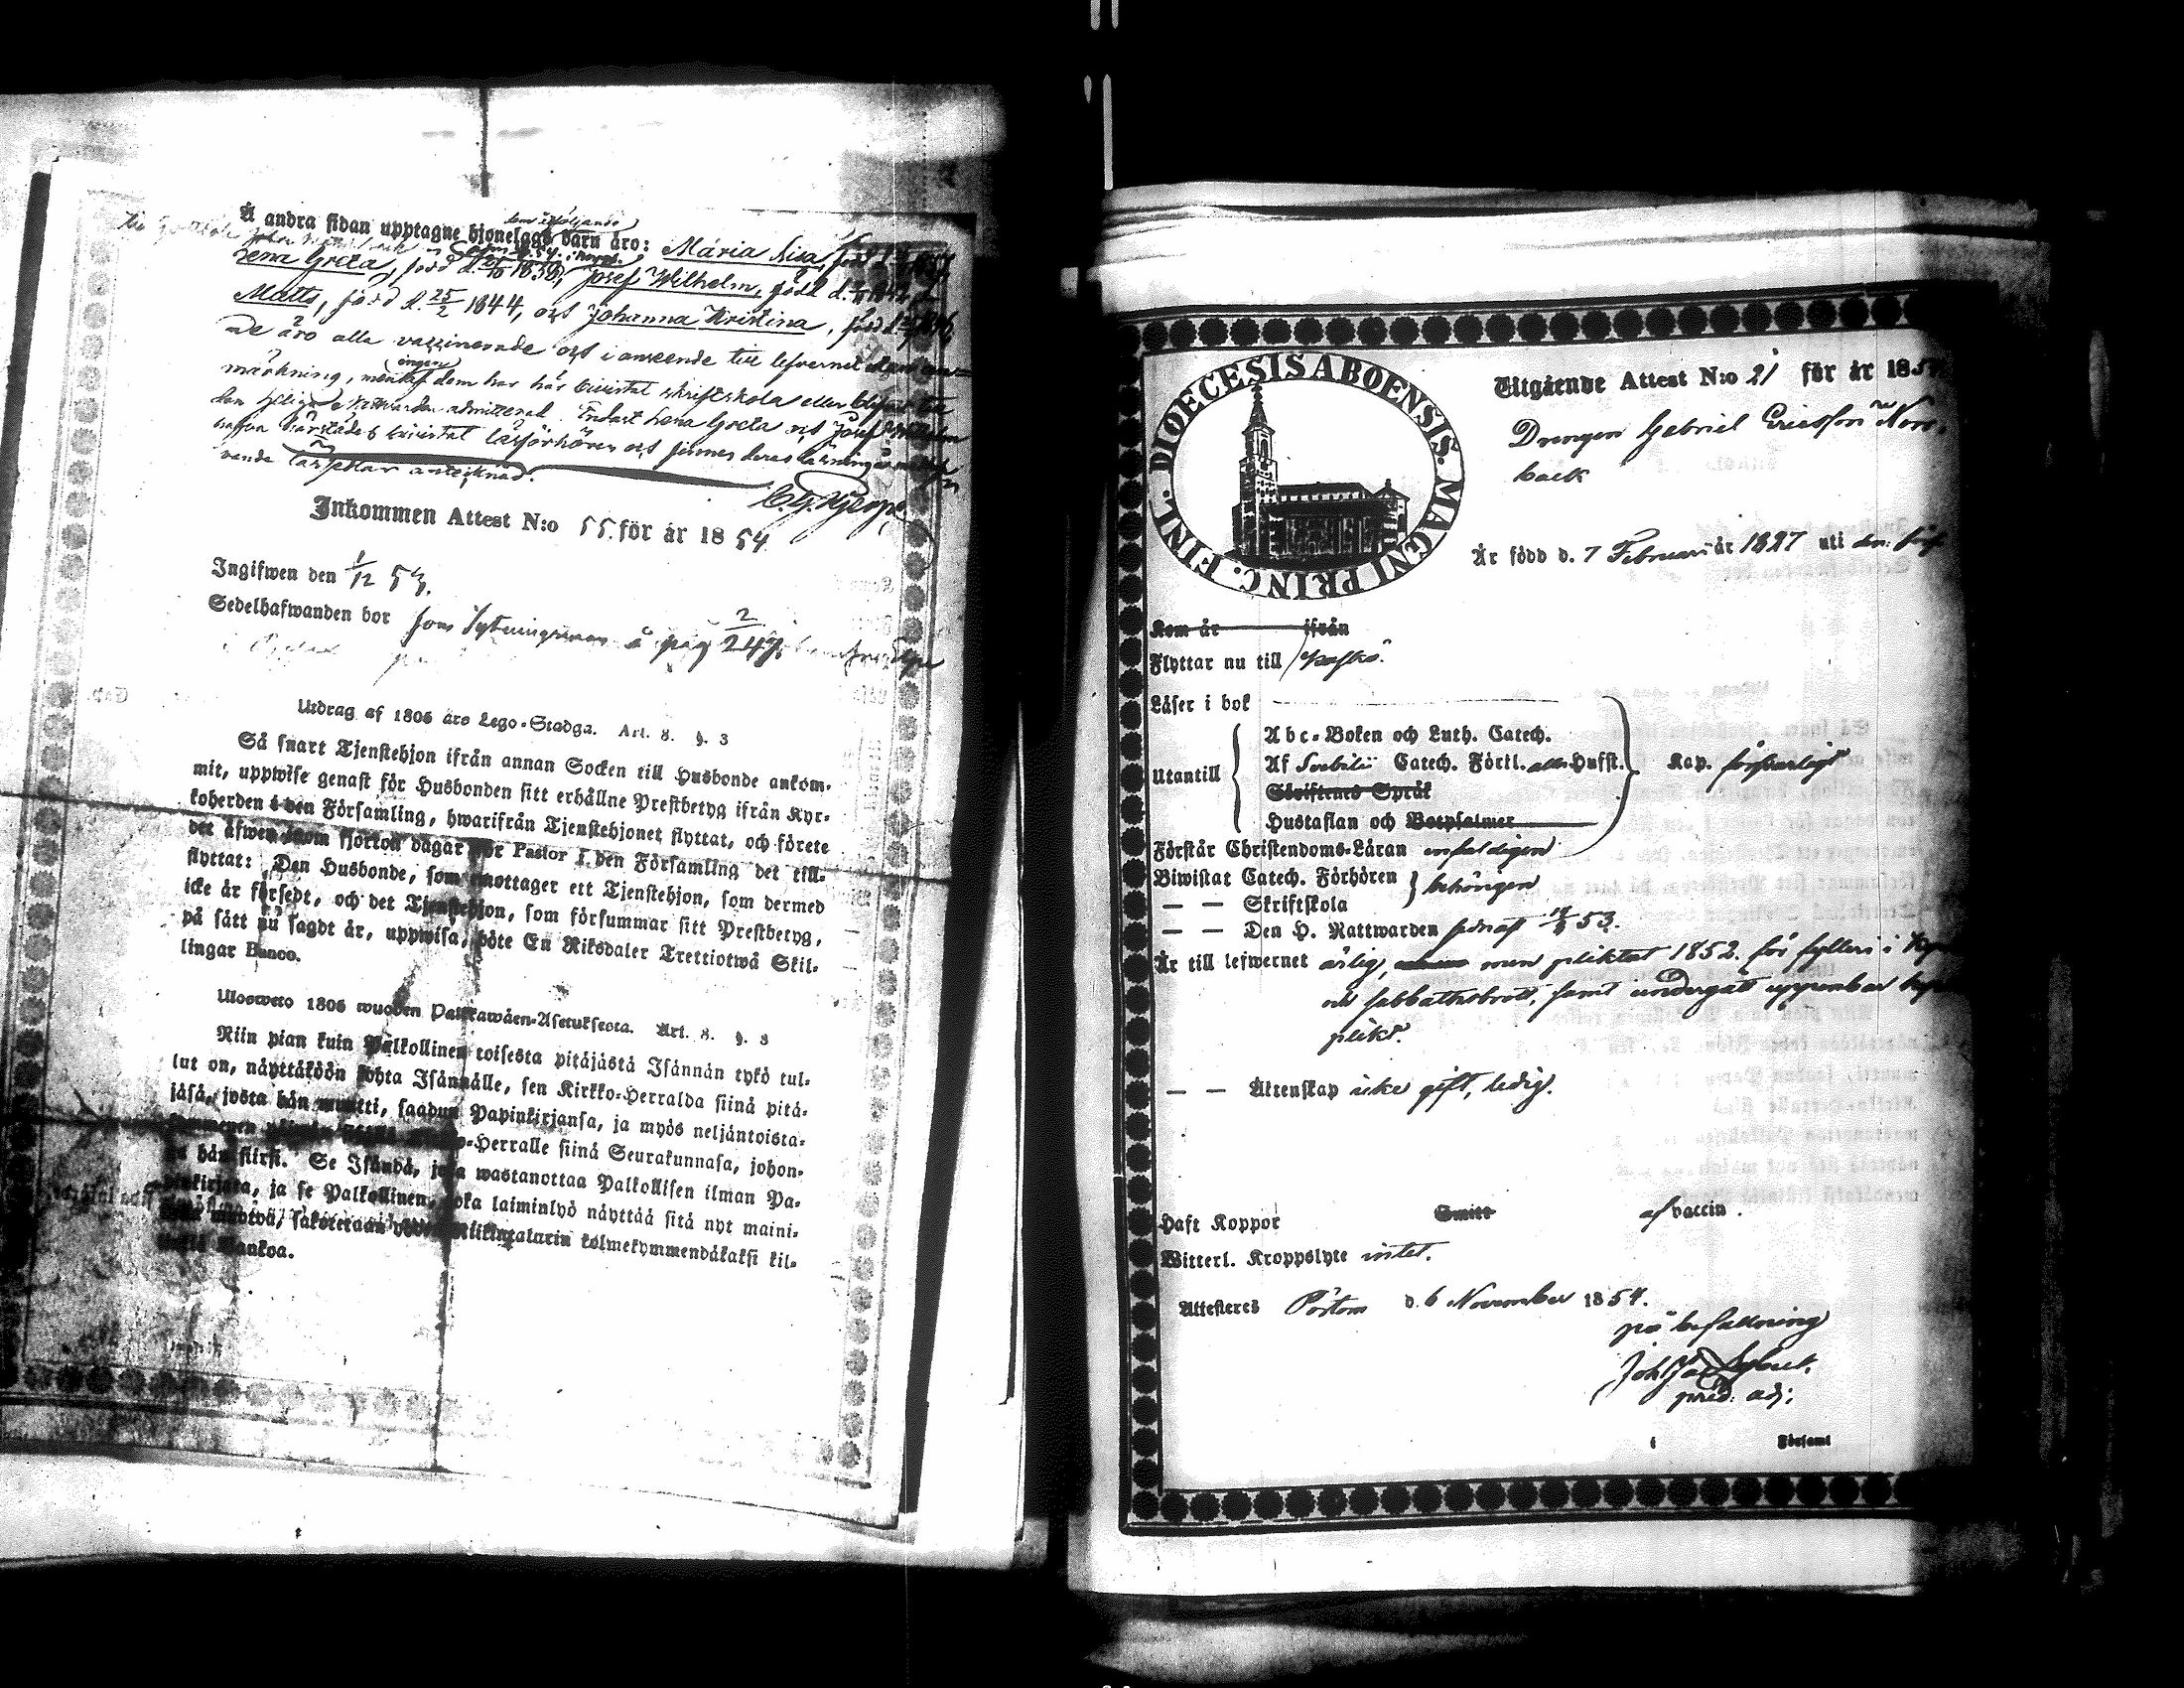 Å andra sidan upptagne hjonelags barn äro: Maria Lisa, född d.
Lena Greta, född d. Josef Wilhelm, född d.
Matts, född d. 25/2 1844, och Johanna Kristina, född d.
äro alla vaccinerade och i anseende till lefvernet utan an-
märkning, ingen dem har här bivistat skriftskola eller blifvit till
den heliga Nattvarden admitterad. Endast Lena Greta och Josef Wilhelm
hafva härstädes bivistat läsförhören och finnes deras
antecknad.
Inkommen Attest N:o 55. för år 1854
Ingifwen den 1/12 54.
Sedelhafwanden bor som Sytningsman å pag 247
Utdrag af 1805 års Lego-Stadga. Art. 8. §. 3
Så snart Tjenstehjon ifrån annan Socken till Husbonde ankom-
mit, uppwise genast för Husbonden sitt erhållne Prestbetyg ifrån Kyr-
koherden i den Församling, hwarifrån Tjenstehjonet flyttat, och förete
det äfwen inom fjorton dagar för Pastor i den Församling det till-
flyttat: Den Husbonde, som emottager ett Tjenstehjon, som dermed
icke är försedt, och det Tjenstehjon, som försummar sitt Prestbetyg,
på sätt nu sagdt är, uppwisa, böte En Riksdaler Trettiotwå Skil-
lingar Banco.
Ulosweto 1805 wuoden Palkkawäen-Asetuksesta. Art. 8. §. 3
Niin pian kuin Palkollinen toisesta pitäjästä Isännän tykö tul-
lut on, näyttäköön kohta Isännälle, sen Kirkko-Herralda siinä pitä-
jäsä, josta hän muutti, saadun Papinkirjansa, ja myös neljäntoista-
-Herralle siinä Seurakunnasa, johon-
hän siirsi. Se Isändä, joka wastanottaa Palkollisen ilman Pa-
pinkirjata, ja se Palkollinen, joka laiminlyö näyttää sitä nyt maini-
muotoa, sakotetaan Riikintalarin kolmekymmendäkaksi kil-
Bankoa.
DIOECESIS ABOENSIS. MAGNI PRINC. FINL.
Utgående Attest N:o 21 för år 1854
Drengen Gabriel Ericsson Norr-
back
Är född d. 7 Februari år 1827 uti
Kom år ifrån
Flyttar nu till
Läser i bok
Utantill
Abc-Boken och Luth. Catech.
Af Svebilii Catech. Förkl. Husst. Kap. försvarligt
Skriftenes Språk
Hustaflan och Botpsalmer
Förstår Christendoms-Läran enfaldigen
Biwistat Catech. Förhören behörigen
— — Skriftskola
— — Den H. Nattwarden sednast 53.
Är till lefwernet ärlig, men pliktat 1852. för fylleri i
och sabbathsbrott, samt undergått uppenbar
plikt.
— — Äktenskap icke gift, ledig.
Haft Koppor Smitt af vaccin.
Witterl. Kroppslyte intet.
Attesteres Pörtom d. 6 November 1854.
på befallning
pred. adj:
i Församl